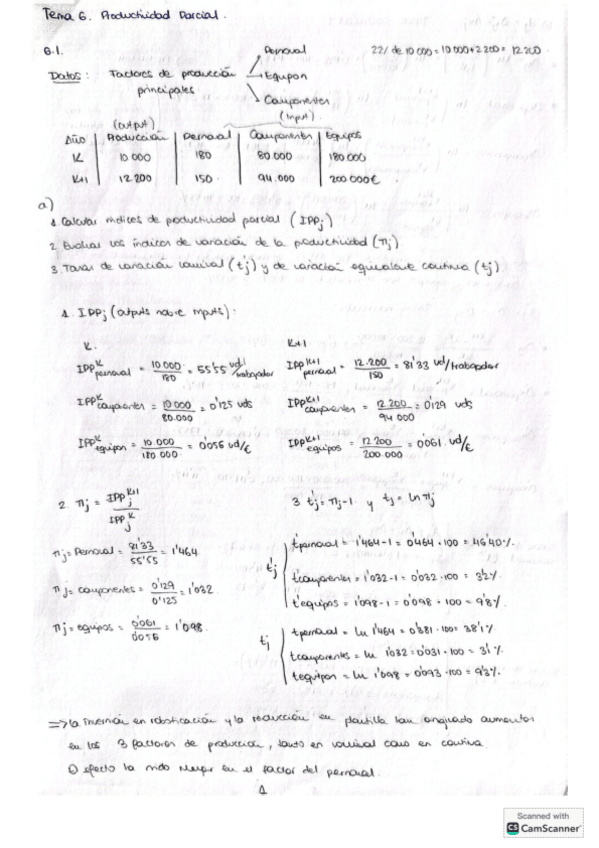 Tema 6. Productividad Parcial.
6.1. Personal 22% de 10 000 = 10 000 + 2 200 = 12 200.
Datos: Factores de producción Equipos
principales Componentes
(output) (input)
Año Producción Personal Componentes Equipos
K 10 000 180 80.000 180 000
K+1 12 200 150 94.000 200 000€
a)
1. Calcular índices de productividad parcial (IPPj)
2. Evaluar los índices de variación de la productividad (πj)
3. Tasas de variación nominal (t'j) y de variación equivalente continua (tj)
1. IPPj (outputs sobre inputs):
K. K+1
IPP^K personal = 10 000 / 180 = 55'55 ud/trabajador IPP^K+1 personal = 12.200 / 150 = 81'33 ud/trabajador
IPP^K componentes = 10 000 / 80.000 = 0'125 uds IPP^K+1 componentes = 12.200 / 94 000 = 0'129 uds
IPP^K equipos = 10.000 / 180 000 = 0'056 ud/€ IPP^K+1 equipos = 12200 / 200.000 = 0'061 ud/€
2. πj = IPPj^K+1 / IPPj^K 3 t'j = πj - 1 y tj = ln πj
πj = Personal = 81'33 / 55'55 = 1'464
πj = componentes = 0'129 / 0'125 = 1'032
πj = equipos = 0'061 / 0'056 = 1'098
t'j
t'personal = 1'464 - 1 = 0'464 · 100 = 46'40%.
t'componentes = 1'032 - 1 = 0'032 · 100 = 3'2%
t'equipos = 1'098 - 1 = 0'098 · 100 = 9'8%.
tj
tpersonal = ln 1'464 = 0'381 · 100 = 38'1%.
tcomponentes = ln 1'032 = 0'031 · 100 = 3'1%
tequipos = ln 1'098 = 0'093 · 100 = 9'3%.
=> La inversión en robotización y la reducción en plantilla han originado aumentos
en los 3 factores de producción, tanto en nominal como en continua.
El efecto ha sido mayor en el factor del personal.
1
Scanned with
CS CamScanner